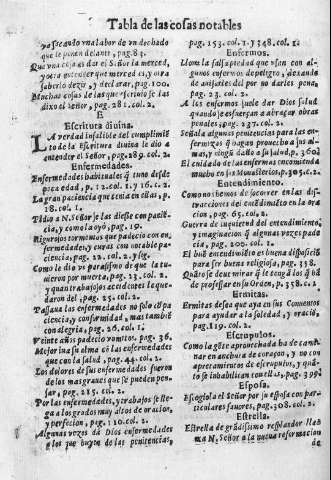 Tabla de las cosas notables
yo sacando vna labor de vn dechado
que le ponen delante, pag.83.
Que vna cosa es dar el Señor la merced,
y otra entender que merced es, y otra
saberlo dezir, y declarar, pag.100.
Muchas cosas de las que escrivio se las
dixo el Señor, pag. 281. col. 2.
E
Escritura diuina.
LA verdad infalible del cumplimiẽ
to de la Escritura diuina le dio a
entender el Señor, pag.289. col. 2.
Enfermedades.
Enfermedades habituales q̃ tuuo desde
poca edad, p. 12. col. 1. y 16. c. 2.
La gran paciencia que tenia en ellas, p.
18. col. 1.
Pidio a N. Señor se las diesse con pacie-
cia, y como la oyò, pag. 19.
Rigurosos tormentos que padecio con en-
fermedades, y curas con notable pa-
ciencia, pag. 22. col. 2. y sg.
Como le dio vn parasismo de que la tu-
uieron por muerta, pag. 23. col. 2.
y quantos trabajos accidentes la que-
daron del, pag. 25. col. 2.
Passaua las enfermedades no solo cõ pa-
ciencia, y conformidad, mas tambiẽ
con alegria, pag. 26. col. 1.
Veinte años padecio vomitos, pag. 36.
Mejor iba su alma cõ las enfermedades
que con la salud, pag. 44. col. 2.
Los dolores de sus enfermedades fueron
de los mas graues que se pueden pen-
sar, pag. 215. col. 2.
Por las enfermedades, y trabajos se lle-
ga a los grados muy altos de oracion,
y perfeccion, pag. 110. col. 2.
Algunas vezes dà Dios enfermedades
a los que huyen de las penitencias,
pag. 153. col. 1. y 348. col. 1.
Enfermos.
Llora la falsa piedad que vsan con al-
gunos enfermos de peligro, dexando
de auisarles del por no darles pena,
pag. 23. col. 2.
A los enfermos suele dar Dios salud
quando se esfuerçan a abraçar obras
penales, pag. 237. col. 2.
Señala algunas penitencias para las en-
fermizas q̃ hagan prouecho a sus al-
mas, y ningũ daño a la salud, p. 360
El cuidado de las enfermas encomienda
mucho en sus Monasterios, p.305.c.2.
Entendimiento.
Como nos hemos de socorrer en las dis-
tracciones del entẽdimiẽto en la ora
cion, pag. 65. col. 2.
Guerra de inquietud del entendimiento,
y imaginacion q̃ algunas vezes pade-
cia, pag. 200. col. 2.
El buẽ entendimiẽto es buena disposiciõ
para ser buena religiosa, pag. 358.
Quãto se deue mirar q̃ le tenga los q̃ hã
de professar en su Orden, p. 358. c. 1.
Ermitas.
Ermitas dessea que aya en sus Conuentos
para ayudar a la soledad, y oraciõ,
pag. 119. col. 2.
Escrupulos.
Como la gẽte aprovechada ha de camí-
nar en anchura de coraçon, y no con
apretamientos de escrupulos, y quãto
se inhabilitan con ellos, pag. 399.
Esposa.
Escogiola el Señor por su esposa con par-
ticulares fauores, pag. 308. col. 2.
Estrella.
Estrella de grãdissimo resplandor lla-
ma N. Señor a la nueua reformacion
de